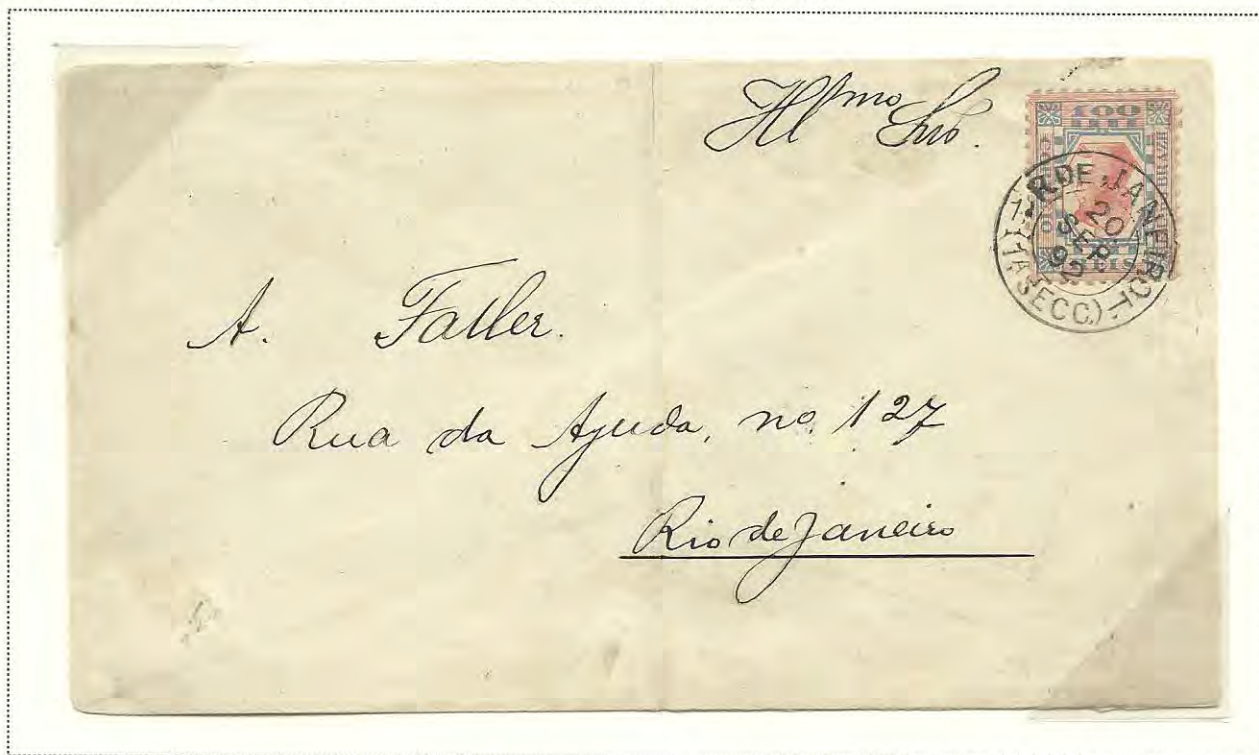 Illmo Snr.
100
R. DE JANEIRO
20
SEP
92
(1A SECC.)
REIS
A. Faller.
Rua da Ajuda, no, 127
Rio de Janeiro